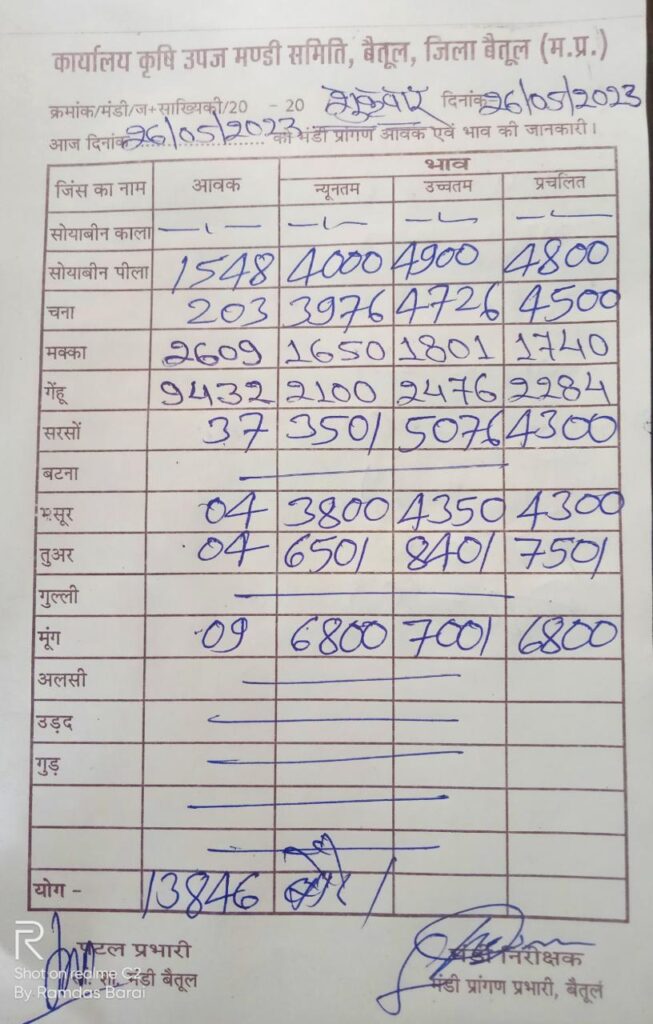 कार्यालय कृषि उपज मण्डी समिति, बैतूल, जिला बैतूल (म.प्र.)
क्रमांक/मंडी/ज+साख्यिकी/20 - 20 शुक्रवार दिनांक 26/05/2023
आज दिनांक 26/05/2023 को मंडी प्रांगण आवक एवं भाव की जानकारी।
जिंस का नाम आवक भाव
न्यूनतम उच्चतम प्रचलित
सोयाबीन काला
सोयाबीन पीला 1548 4000 4900 4800
चना 203 3976 4726 4500
मक्का 2609 1650 1801 1740
गेंहू 9432 2100 2476 2284
सरसों 37 3501 5076 4300
बटना
मसूर 04 3800 4350 4300
तुअर 04 6501 8401 7501
गुल्ली
मूंग 09 6800 7001 6800
अलसी
उड़द
गुड़
योग - 13846 बोरे
पटल प्रभारी मंडी निरीक्षक
मंडी बैतूल मंडी प्रांगण प्रभारी, बैतूल
R
Shot on realme C2
By Ramdas Barai